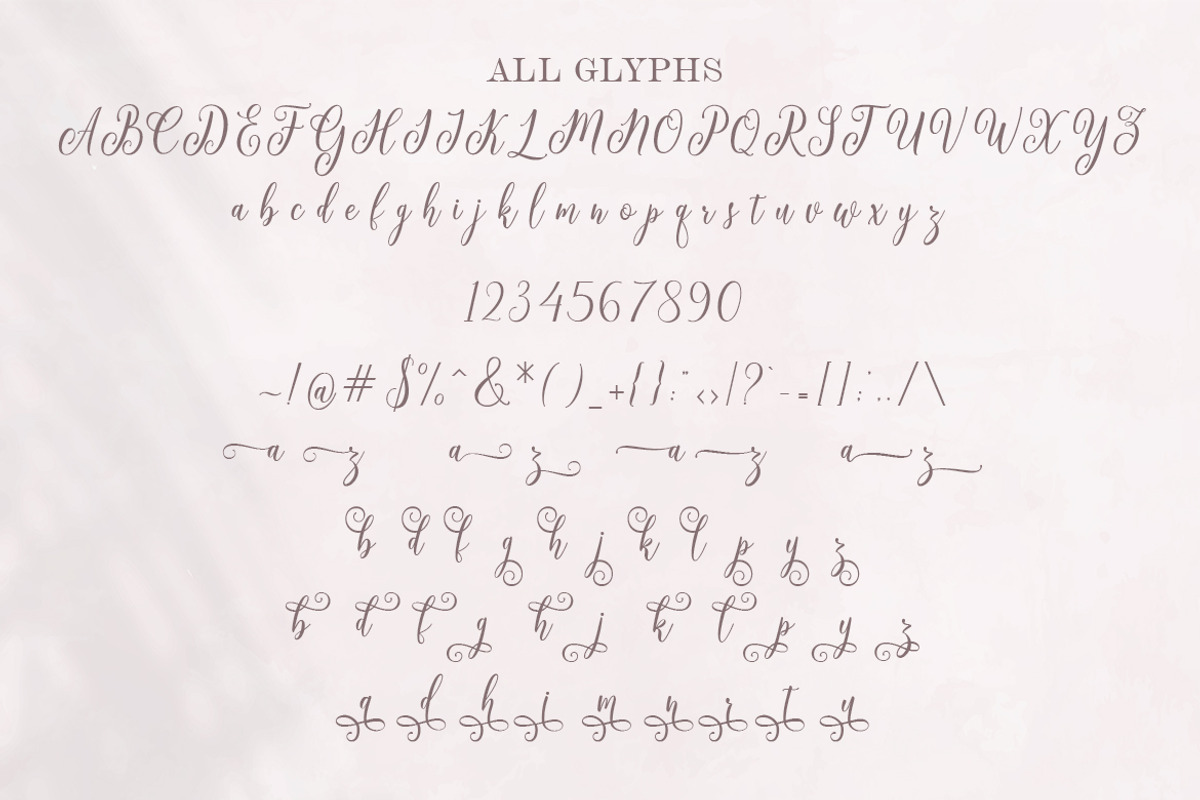 ALL GLYPHS
A B C D E F G H I J K L M N O P Q R S T U V W X Y Z
a b c d e f g h i j k l m n o p q r s t u v w x y z
1 2 3 4 5 6 7 8 9 0
~ ! @ # $ % ^ & * ( ) _ + { } : " < > | ? ` - = [ ] ; ' , . / \
a z a z a z a z
b d f g h j k l p y z
b d f g h j k l p y z
a d h i m n r t u